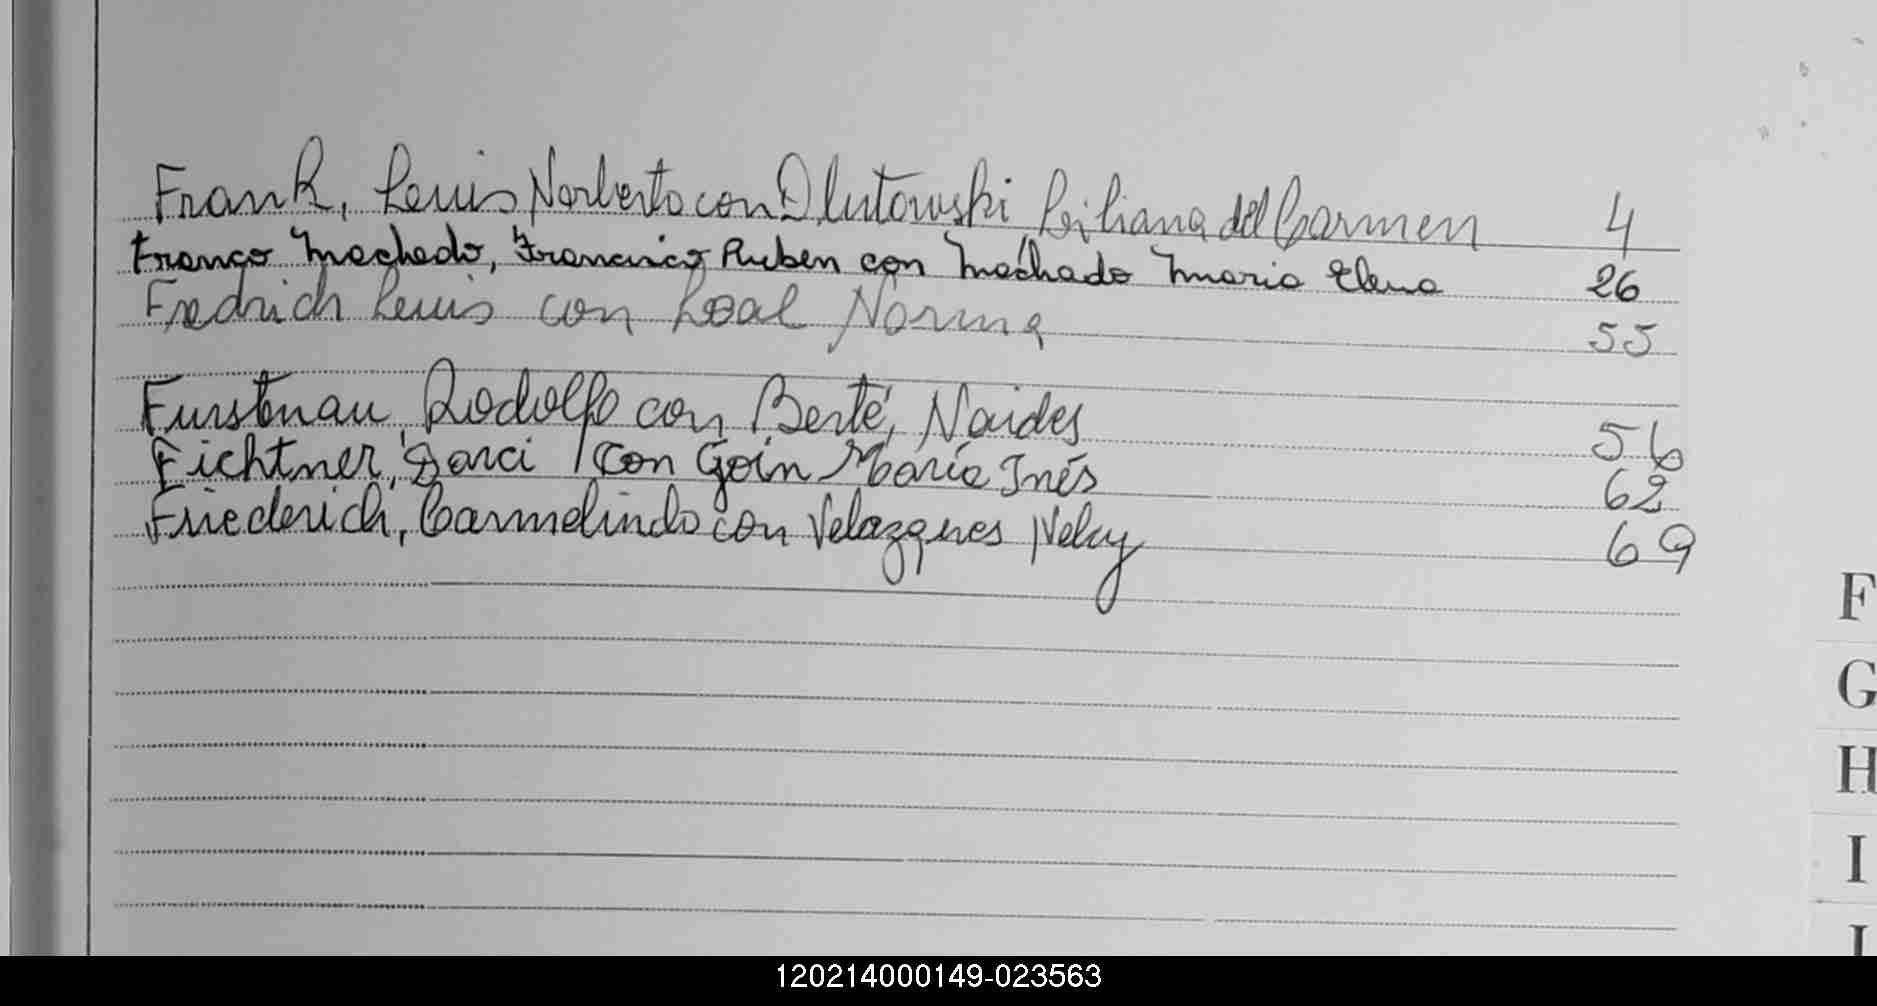 Frank, Luis Norberto con Dlutowski, Liliana del Carmen 4
Franco Machado, Francisco Ruben con Machado Maria Elena 26
Fredrich Luis con Leal Norma 55
Furstenau, Rodolfo con Berté, Naides 56
Fichtner, Darci con Goin Maria Inés 62
Friederich, Carmelindo con Velazques Nelcy 69
F
G
H
I
J
120214000149-023563